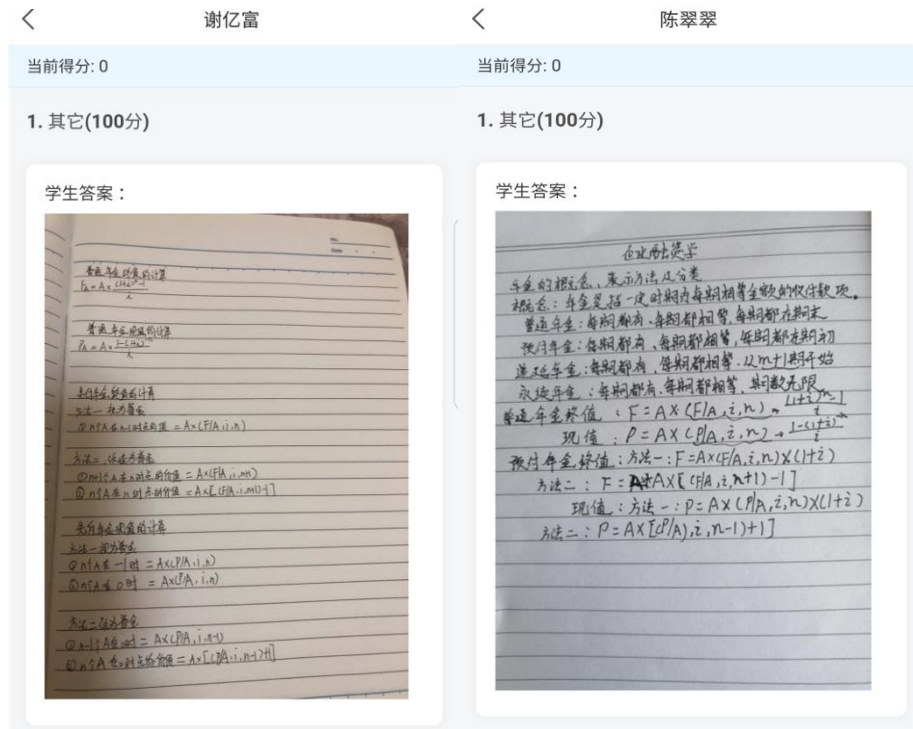 谢亿富
当前得分: 0
1. 其它(100分)
学生答案：
普通年金终值的计算
Fₐ = A × ((1+i)ⁿ-1)/i
普通年金现值的计算
Pₐ = A × (1-(1+i)⁻ⁿ)/i
先付年金终值的计算
方法一 视为普金
①n个A在n-1时点的值 = A×(F/A,i,n)
方法二
①n+1个A在n时点的价值 = A×(F/A,i,n+1)
②n个A在n时点的价值 = A×[(F/A,i,n+1)-1]
先付年金现值的计算
方法一 视为普金
①n个A在-1时 = A×(P/A,i,n)
②n个A在0时 = A×(P/A,i,n)
方法二 视为普金
①n-1个A在0时 = A×(P/A,i,n-1)
②n个A在0时点的价值 = A×[(P/A,i,n-1)+1]
陈翠翠
当前得分: 0
1. 其它(100分)
学生答案：
企业融资学
年金的概念、表示方法及分类
概念：年金是指一定时期内每期相等金额的收付款项。
普通年金：每期都有、每期都相等，每期都在期末
预付年金：每期都有、每期都相等，每期都在期初
递延年金：每期都有、每期都相等、从m+1期开始
永续年金：每期都有、每期都相等、期数无限
普通年金终值：F=A×(F/A,i,n) → ((1+i)ⁿ-1)/i
现值：P=A×(P/A,i,n) → (1-(1+i)⁻ⁿ)/i
预付年金终值：方法一：F=A×(F/A,i,n)×(1+i)
方法二：F=A×[(F/A,i,n+1)-1]
现值：方法一：P=A×(P/A,i,n)×(1+i)
方法二：P=A×[(P/A),i,n-1)+1]